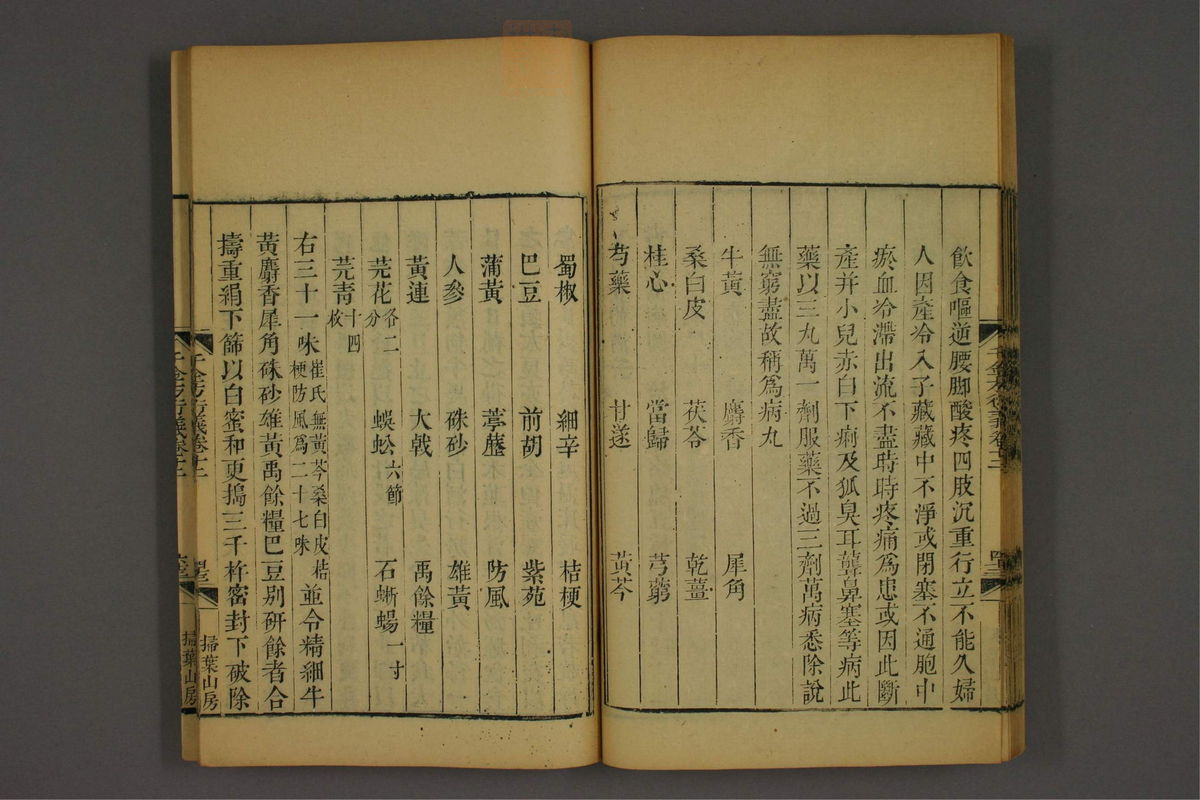 飲食嘔逆腰脚酸疼四肢沉重行立不能久婦
人因產冷入子藏藏中不淨或閉塞不通胞中
瘀血冷滯出流不盡時時疼痛爲患或因此斷
產并小兒赤白下痢及狐臭耳聾鼻塞等病此
藥以三丸萬一劑服藥不過三劑萬病悉除說
無窮盡故稱爲病丸
牛黃 麝香 犀角
桑白皮 茯苓 乾薑
桂心 當歸 芎藭
芍藥 甘遂 黃芩
蜀椒 細辛 桔梗
巴豆 前胡 紫苑
蒲黃 葶藶 防風
人參 硃砂 雄黃
黃連 大戟 禹餘糧
芫花各二分 蜈蚣六節 石蜥蜴一寸
芫青十四枚
右三十一味崔氏無黃芩桑白皮桔梗防風爲二十七味並令精細牛
黃麝香犀角硃砂雄黃禹餘糧巴豆別研餘者合
擣重絹下篩以白蜜和更搗三千杵密封下破除
千金方衍義卷十二
掃葉山房